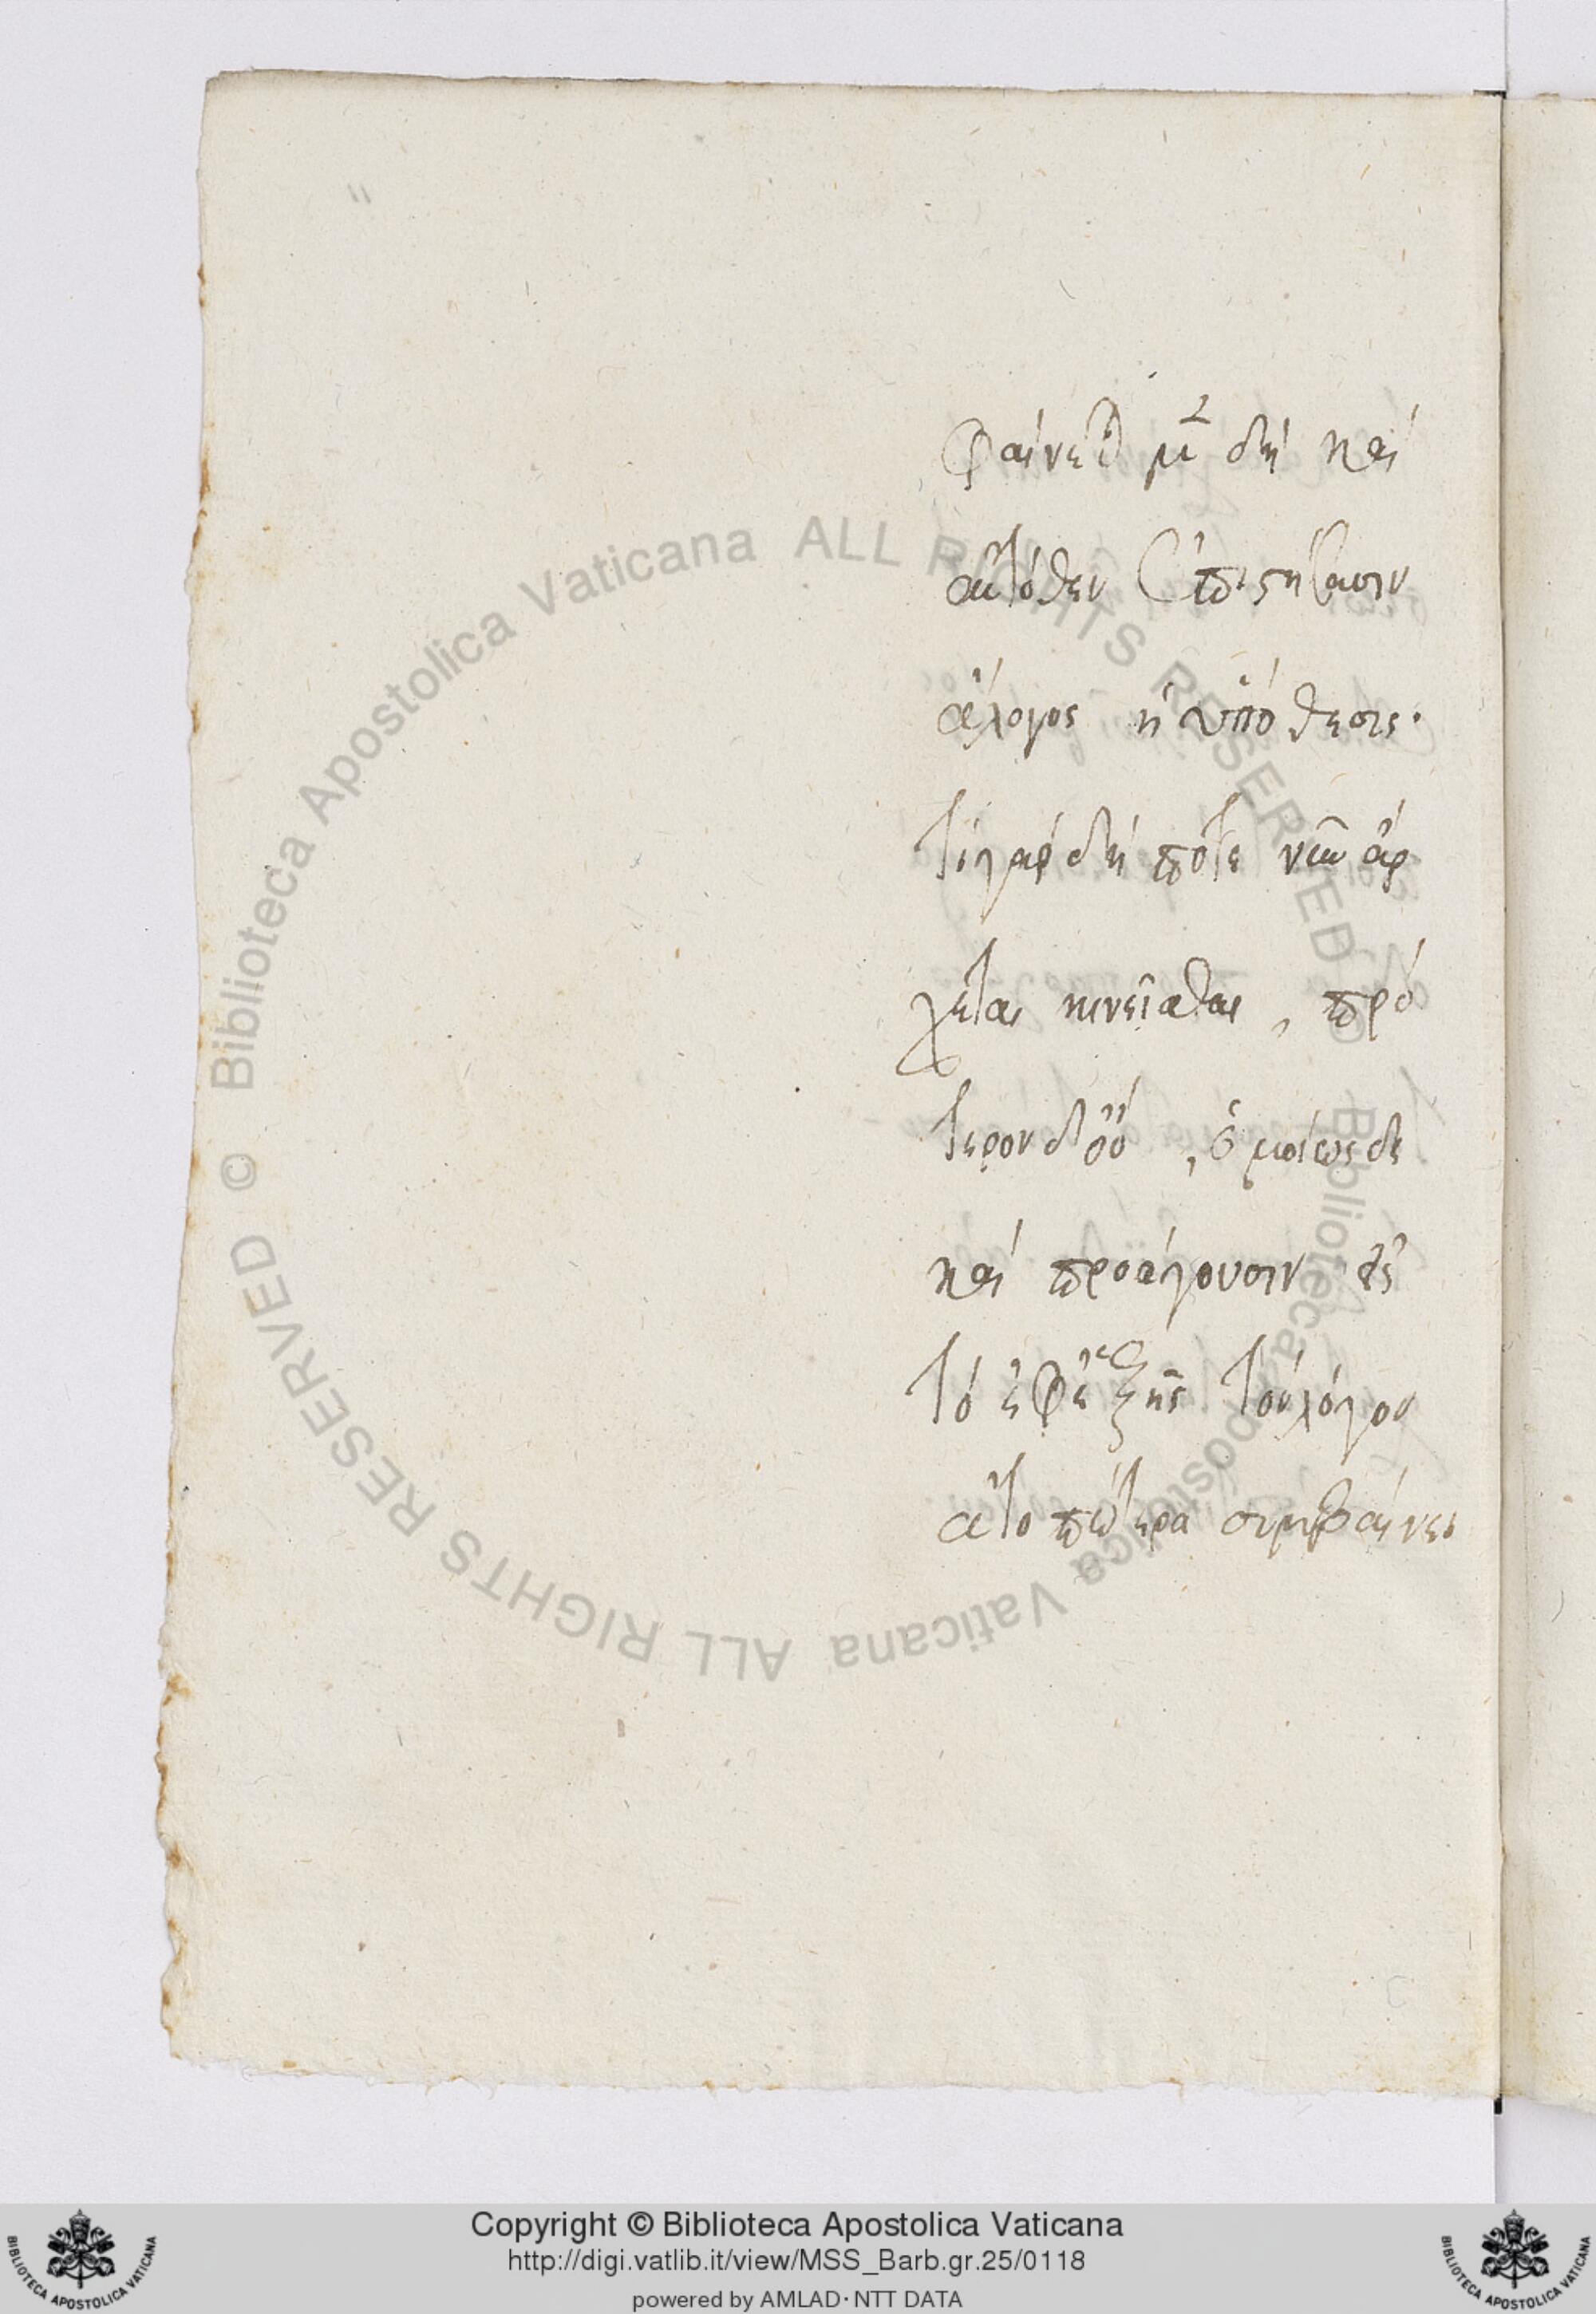 φαίνετ μὲν δὴ καὶ
αὐτόθεν ἐπιστήσασιν
ἄλογος ἡ ὑπόθεσις.
τί γὰρ δή ποτε νῦν ἄρ
χεται κινεῖσθαι, πρό
τερον δ' οὔ, ὁμοίως δὲ
καὶ προάγουσιν εἰς
τὸ ἐφεξῆς τὸν λόγον
ἀτοπώτερα συμβαίνει
© Biblioteca Apostolica Vaticana ALL RIGHTS RESERVED
© Biblioteca Apostolica Vaticana ALL RIGHTS RESERVED
Copyright © Biblioteca Apostolica Vaticana
http://digi.vatlib.it/view/MSS_Barb.gr.25/0118
powered by AMLAD·NTT DATA
BIBLIOTECA APOSTOLICA VATICANA
BIBLIOTECA APOSTOLICA VATICANA